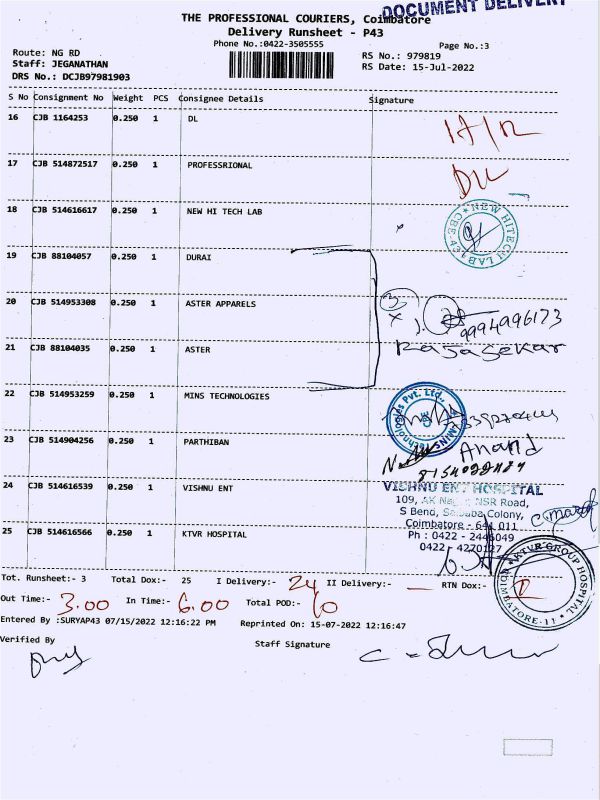 DOCUMENT DELIVERY
THE PROFESSIONAL COURIERS, Coimbatore
Delivery Runsheet - P43
Phone No.:0422-3505555
Page No.:3
Route: NG RD
RS No.: 979819
Staff: JEGANATHAN
RS Date: 15-Jul-2022
DRS No.: DCJB97981903
S No Consignment No Weight PCS Consignee Details Signature
16 CJB 1164253 0.250 1 DL
17 CJB 514872517 0.250 1 PROFESSRIONAL
18 CJB 514616617 0.250 1 NEW HI TECH LAB
NEW HITECH LAB
19 CJB 88104057 0.250 1 DURAI
20 CJB 514953308 0.250 1 ASTER APPARELS
3
9994996173
21 CJB 88104035 0.250 1 ASTER
Rajasekar
22 CJB 514953259 0.250 1 MINS TECHNOLOGIES
MINS Technologies Pvt. Ltd.,
23 CJB 514904256 0.250 1 PARTHIBAN
Anand
24 CJB 514616539 0.250 1 VISHNU ENT
VISHNU ENT HOSPITAL
109, AK Nagar, NSR Road,
S Bend, Saibaba Colony,
Coimbatore - 641 011
Ph : 0422 - 2446049
0422 - 4270127
25 CJB 514616566 0.250 1 KTVR HOSPITAL
KTVR GROUP HOSPITAL
COIMBATORE-11
Tot. Runsheet:- 3 Total Dox:- 25 I Delivery:- 24 II Delivery:- — RTN Dox:-
Out Time:- 3.00 In Time:- 6.00 Total POD:- 10
Entered By :SURYAP43 07/15/2022 12:16:22 PM Reprinted On: 15-07-2022 12:16:47
Verified By
Staff Signature